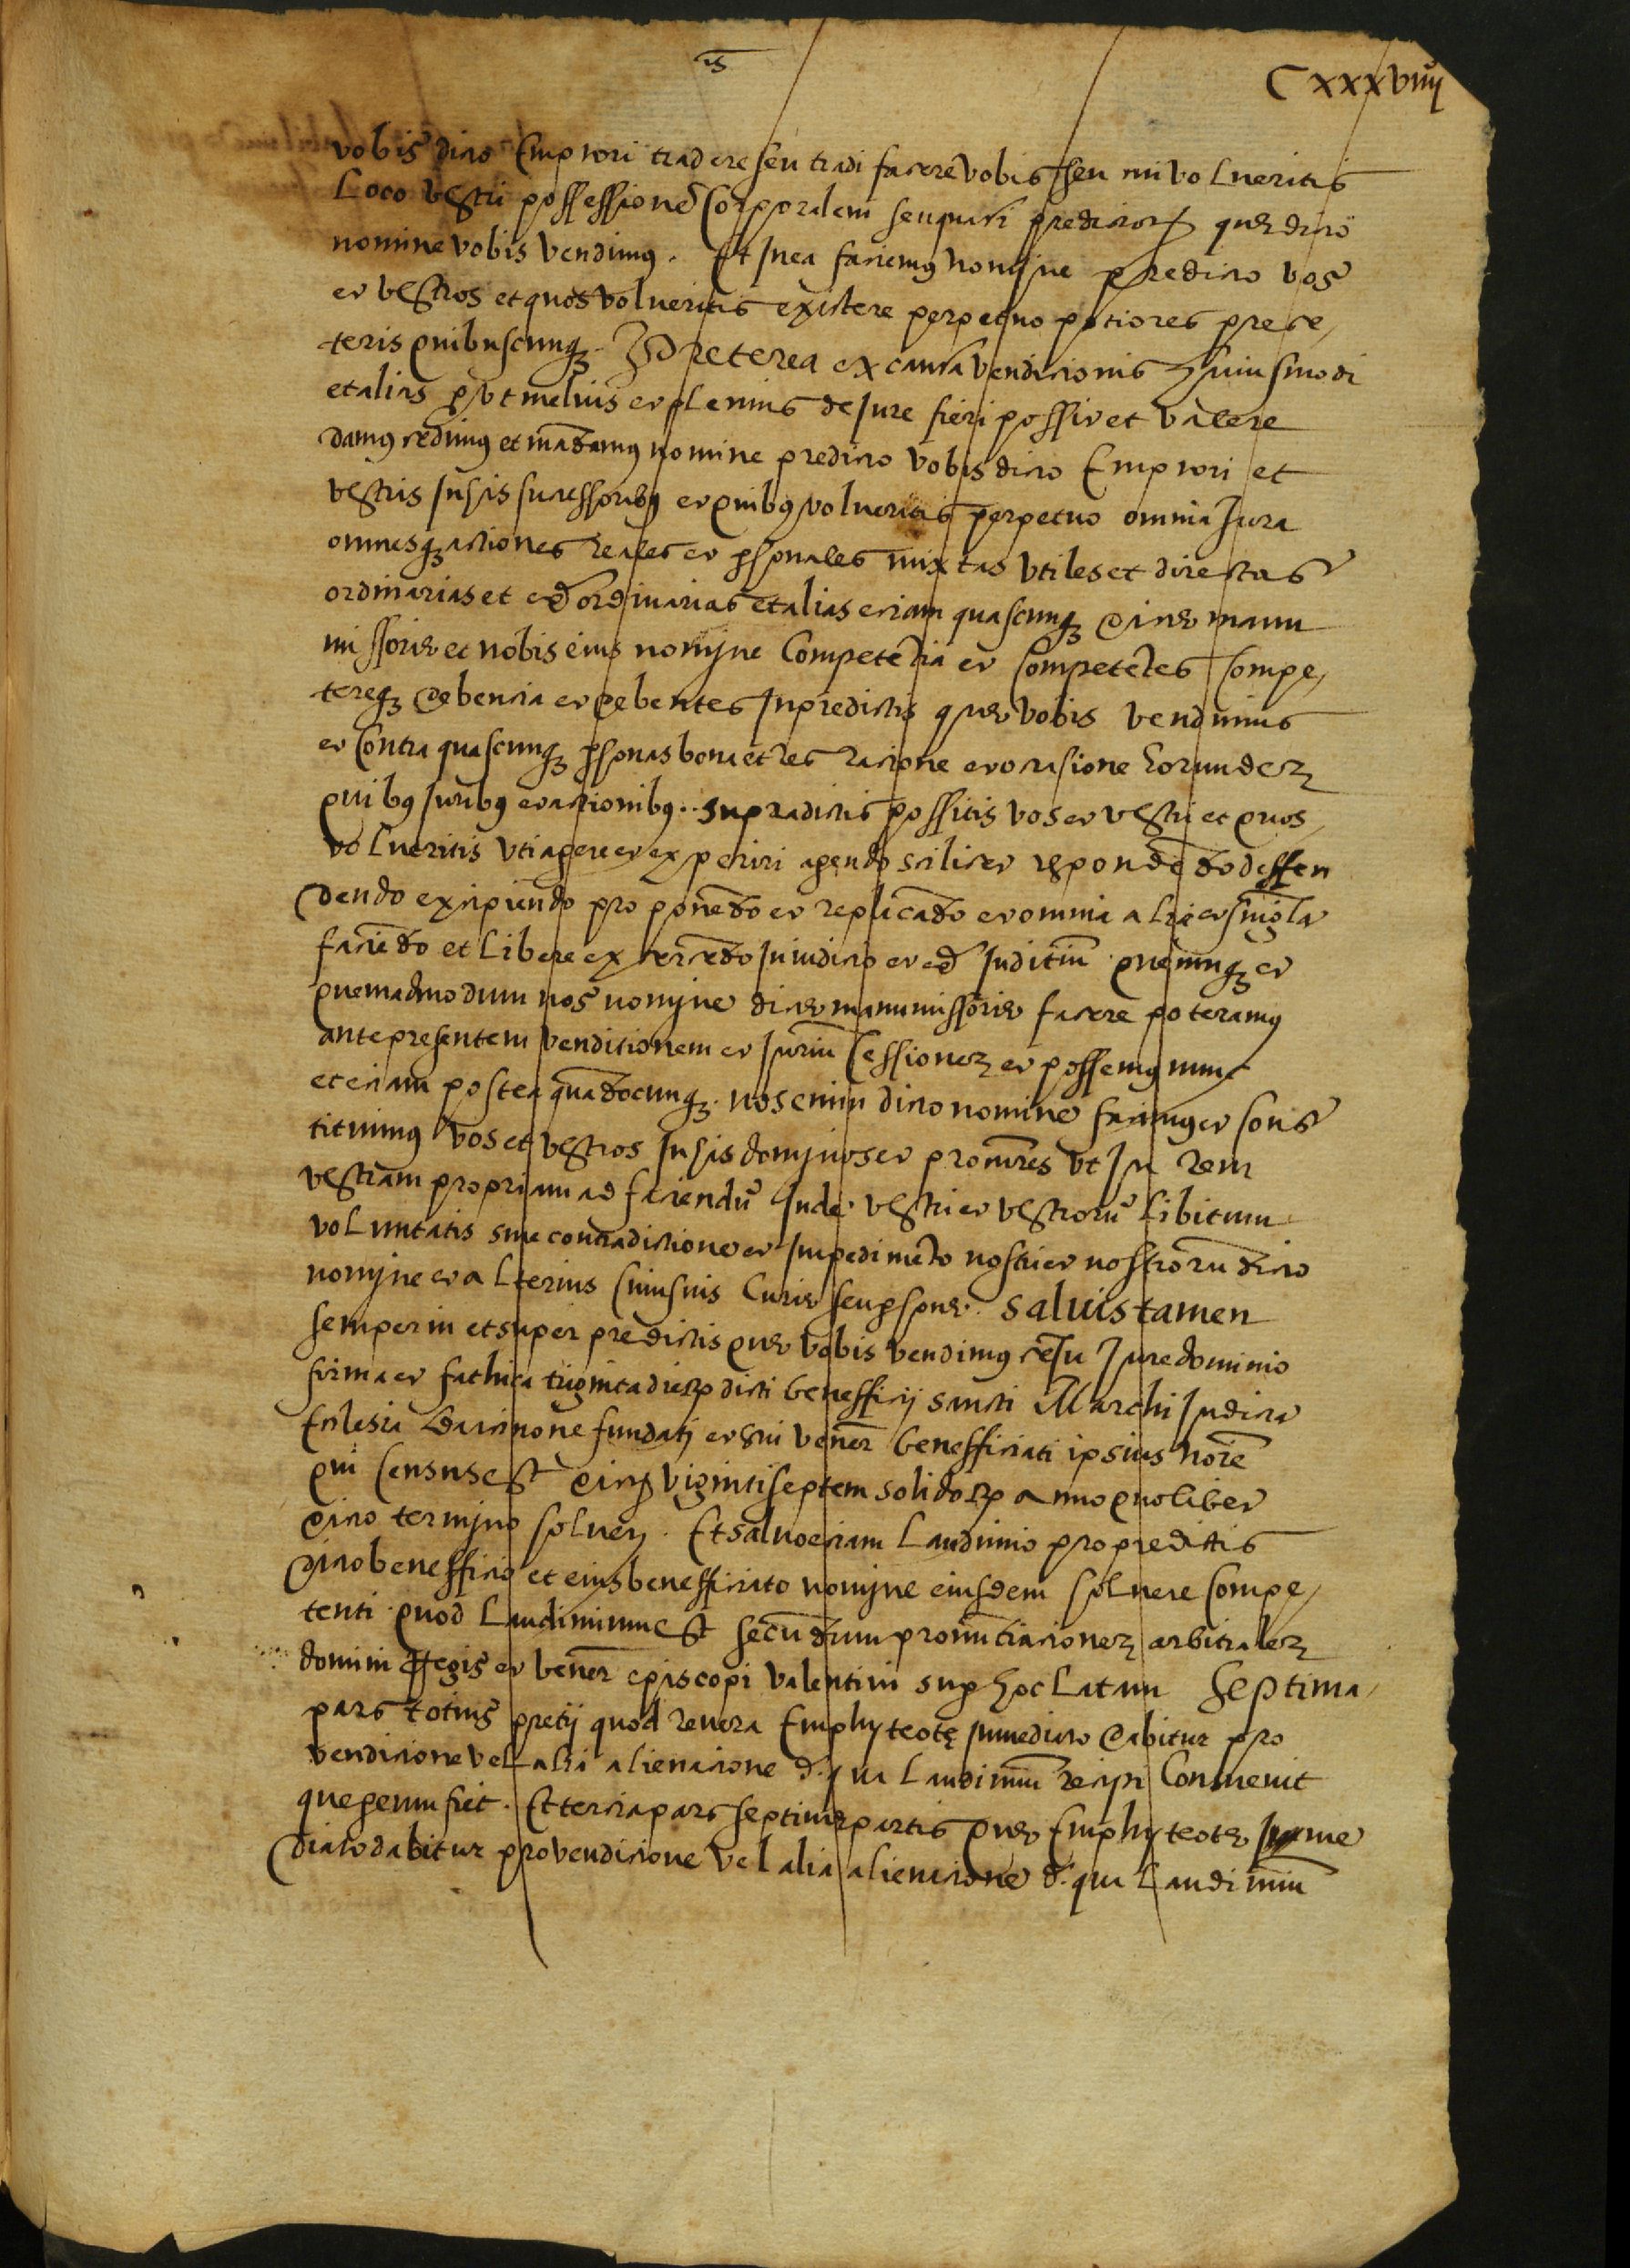 is
CXXXVIIIJ
vobis dicto Emptori tradere seu tradi facere vobis seu cui volueritis
Loco vestri possessione Corporalem seu quasi predictorum que dicto
nomine vobis vendimus. Et Inea faciemus nomine predicto vos
et vestros et quos volueritis existere perpetuo potiores prece,
teris quibuscunque. Preterea ex causa vendicionis huiusmodi
et alias put melius et plenius de Jure fieri possit et valere
damus cedimus et mādamus nomine predicto vobis dicto Emptori et
vestris Inhis successoribus et quibus volueritis perpetuo omnia Jura
omnesque actiones reales et personales mixtas vtiles et directas
ordinarias et exordinarias et alias eciam quascunque dicte manu
missorie et nobis eius nomine Competētia et Competētes Compe,
tereque debencia et debentes Inpredictis que vobis vendimus
et Contra quascunque psonas bona et res racione et occasione eorundem
quibus Juribus et actionibus. supradictis possitis vos et vestri et quos
volueritis vti agere et experiri agendo scilicet respondēdo deffen
dendo excipiendo proponēdo et replicādo et omnia alia et singla
faciēdo et Libere exercēdo Iniudicio et ex Juditiū quecunque et
quemadmodum nos nomine dicte manumissorie facere poteramus
ante presentem venditionem et Juriū Cessionem et possemus nunc
et eciam postea quādocunque. nos enim dicto nomine facimus et cons
tituimus vos et vestros Inhis dominos et procuratores vt In rem
vestram propriam ad faciendū Inde vestri et vestrorū Libitum
voluntatis sine contradictione et Impedimēto nostri et nostrorū dicto
nomine et alterius Cuiusuis Curie seu psone. Saluis tamen
semper in et super predictis que vobis vendimus cēsu Jure dominio
firma et fathica triginta dierum dicti benefficij sancti Marchi Indicta
Ecclesia Barcinone fundati et sui vener benefficiati ipsius noīe
qui Census est dictorum viginti septem solidorum anno quolibet
dicto termino soluen. Et saluo eciam Laudimio pro predictis
dicto benefficio et eius benefficiato nomine eiusdem soluere Compe,
tenti. quod Laudimium est secūdum pronūciacionem arbitralem
domini Regis et vener episcopi Valentini sup hoc Latam Septima
pars totius pretij quod reuera Emphyteote Inmediato dabitur pro
vendicione vel alia alienacione d. qua Laudimiū recipi Conuenit
que penum fiet. Et tercia pars septime partis que Emphyteote Inme
diato dabitur pro vendicione vel alia alienacione d. qua Laudimiū